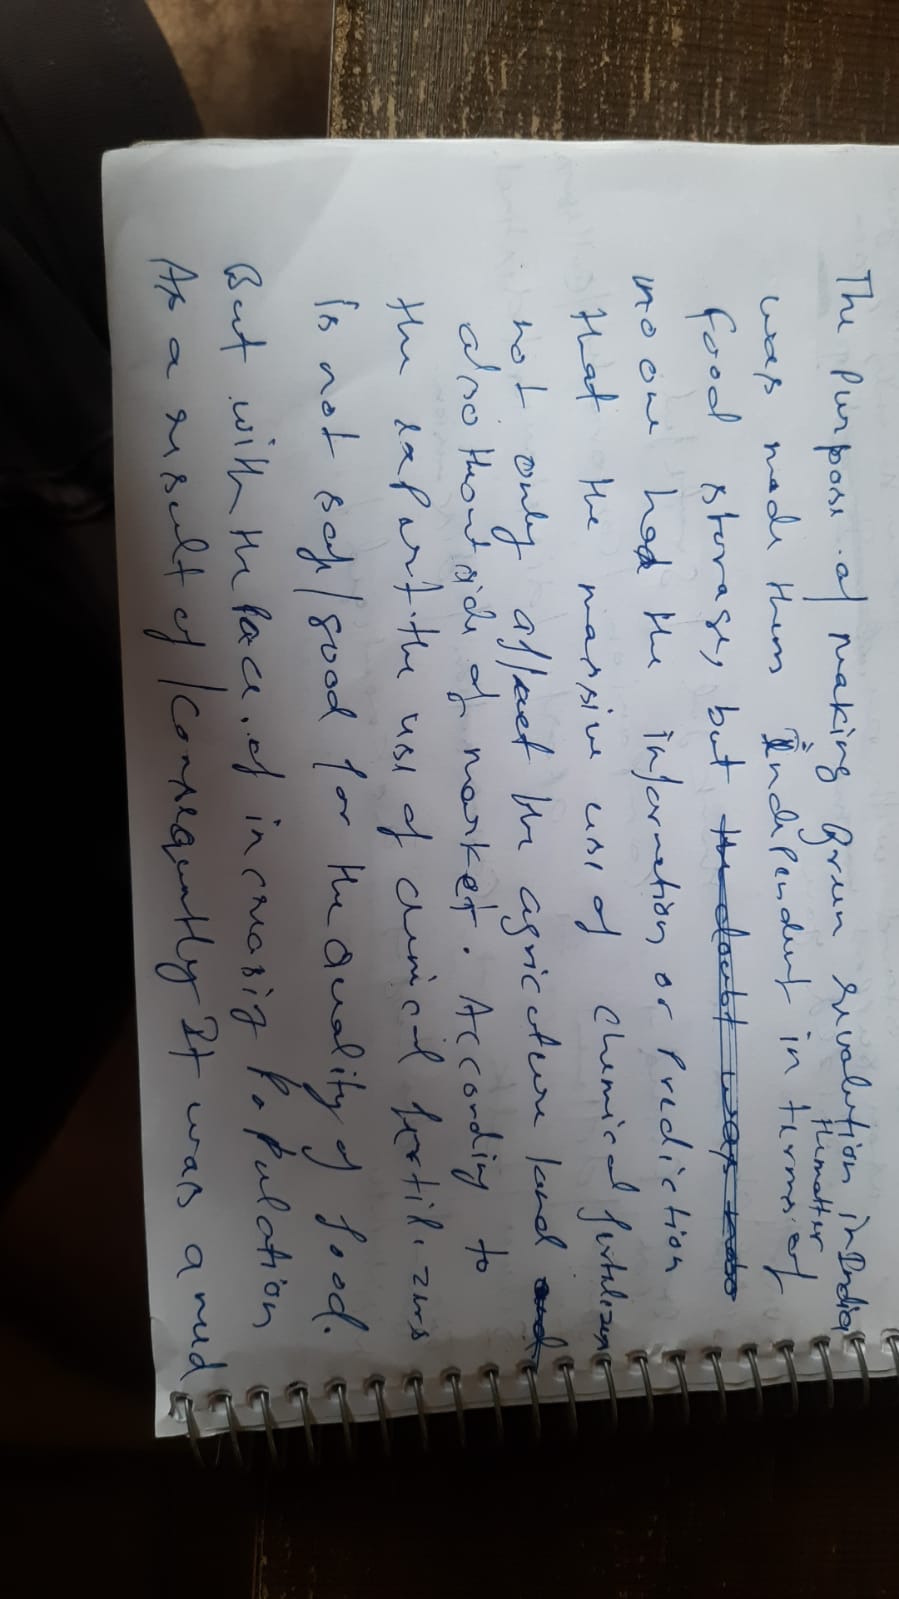 The purpose of making Green revolution in India
was made them Independent in terms of the matter
food storage, but the doubt was that
no one had the information or prediction
that the massive use of chemical fertilizer
not only affect the agriculture land and
also the outside of market. According to
the expert the use of chemical fertilizers
is not safe/good for the quality of food.
But with the pace of increasing population
As a result of/consequently It was a need